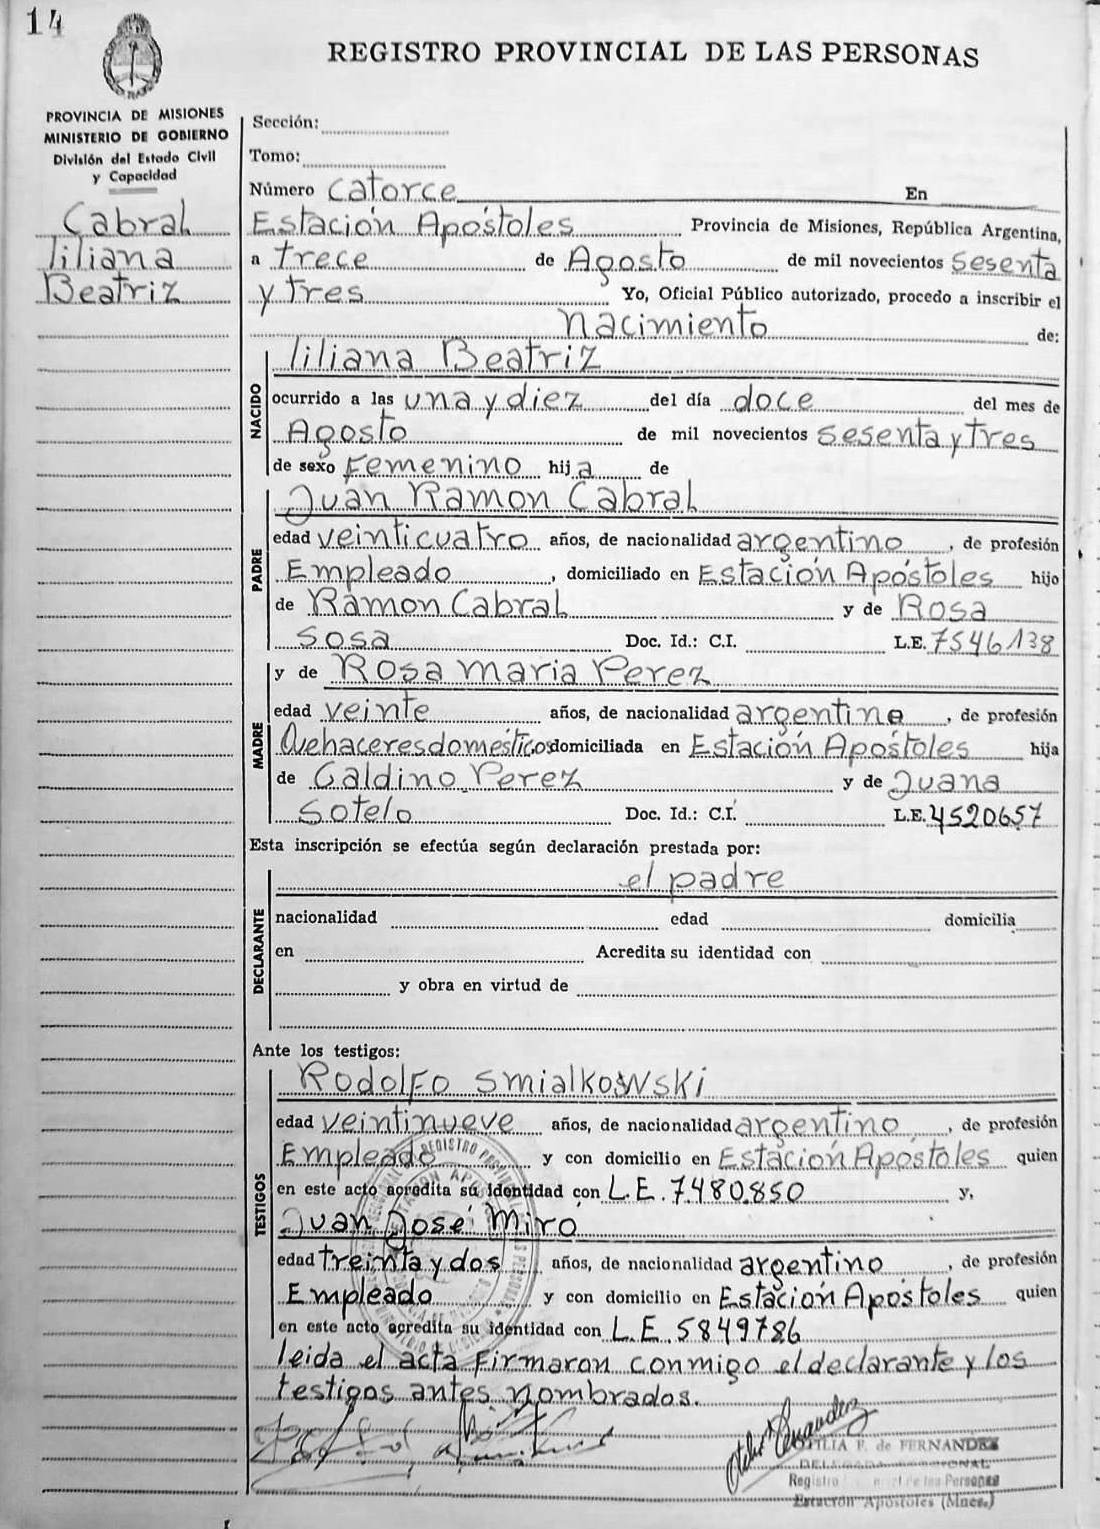 14
REGISTRO PROVINCIAL DE LAS PERSONAS
PROVINCIA DE MISIONES
MINISTERIO DE GOBIERNO
División del Estado Civil
y Capacidad
Cabral
liliana
Beatriz
Sección:
Tomo:
Número catorce En
Estación Apóstoles Provincia de Misiones, República Argentina,
a trece de Agosto de mil novecientos sesenta
y tres Yo, Oficial Público autorizado, procedo a inscribir el
Nacimiento de:
NACIDO
liliana Beatriz
ocurrido a las una y diez del día doce del mes de
Agosto de mil novecientos sesenta y tres
de sexo Femenino hija de
PADRE
Juan Ramon Cabral
edad veinticuatro años, de nacionalidad argentino, de profesión
Empleado, domiciliado en Estación Apóstoles hijo
de Ramon Cabral y de Rosa
Sosa Doc. Id.: C.I. L.E. 7546138
MADRE
y de Rosa Maria Perez
edad veinte años, de nacionalidad argentina, de profesión
Quehaceres domésticos domiciliada en Estación Apóstoles hija
de Galdino Perez y de Juana
Sotelo Doc. Id.: C.I. L.E. 4520657
Esta inscripción se efectúa según declaración prestada por:
DECLARANTE
el padre
nacionalidad edad domicilia
en Acredita su identidad con
y obra en virtud de
Ante los testigos:
TESTIGOS
Rodolfo Smialkowski
edad veintinueve años, de nacionalidad argentino, de profesión
Empleado y con domicilio en Estación Apóstoles quien
en este acto acredita su identidad con L.E. 7.480.850 y,
Juan José Miró
edad treinta y dos años, de nacionalidad argentino, de profesión
Empleado y con domicilio en Estación Apóstoles quien
en este acto acredita su identidad con L.E. 5849786
leida el acta firmaron conmigo el declarante y los
testigos antes nombrados.
F. de FERNANDEZ
Registro de las Personas
Estación Apóstoles (Mnes.)